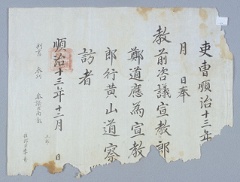 吏曹順治十三年
月 日奉
教前咨議宣教郎
鄭道應為宣教
郎行黃山道察
訪者
順治十三年十二月 日